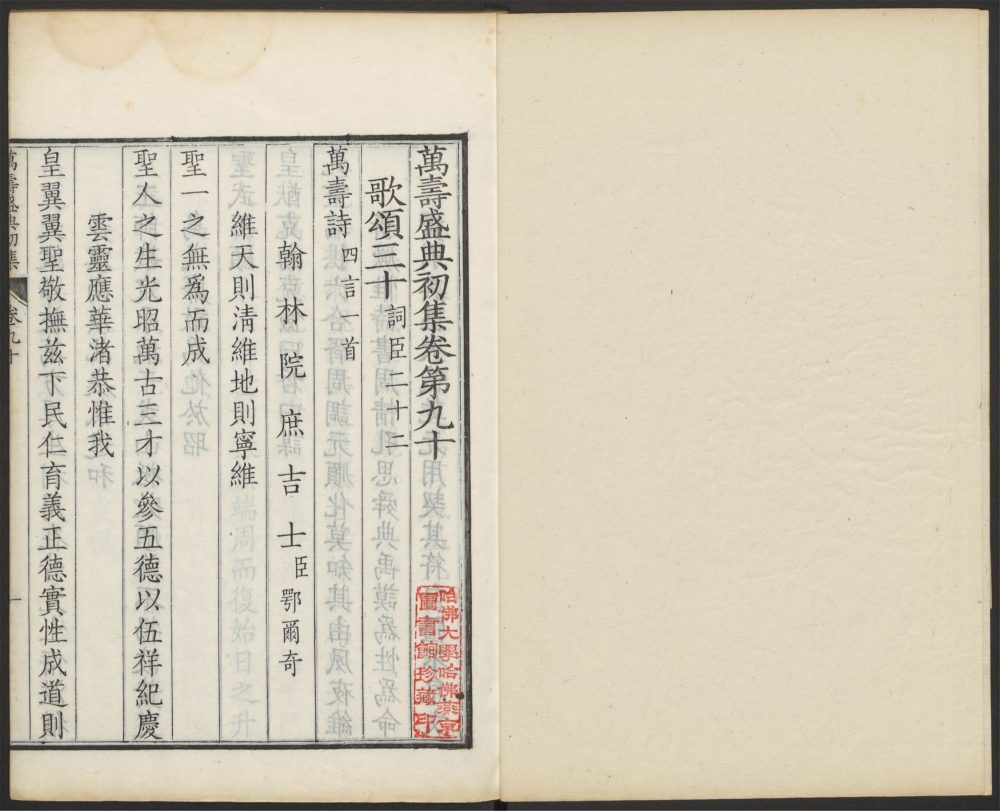 萬壽盛典初集卷第九十
歌頌三十 詞臣二十二
萬壽詩 四言一首
翰林院庶吉士臣鄂爾奇
維天則淸維地則寧維
聖一之無爲而成
聖人之生光昭萬古三才以參五德以伍祥紀慶
雲靈應華渚恭惟我
皇翼翼聖敬撫兹下民仁育義正德實性成道則
萬壽盛典初集 卷九十 一
哈佛大學哈佛燕京
圖書館珍藏印